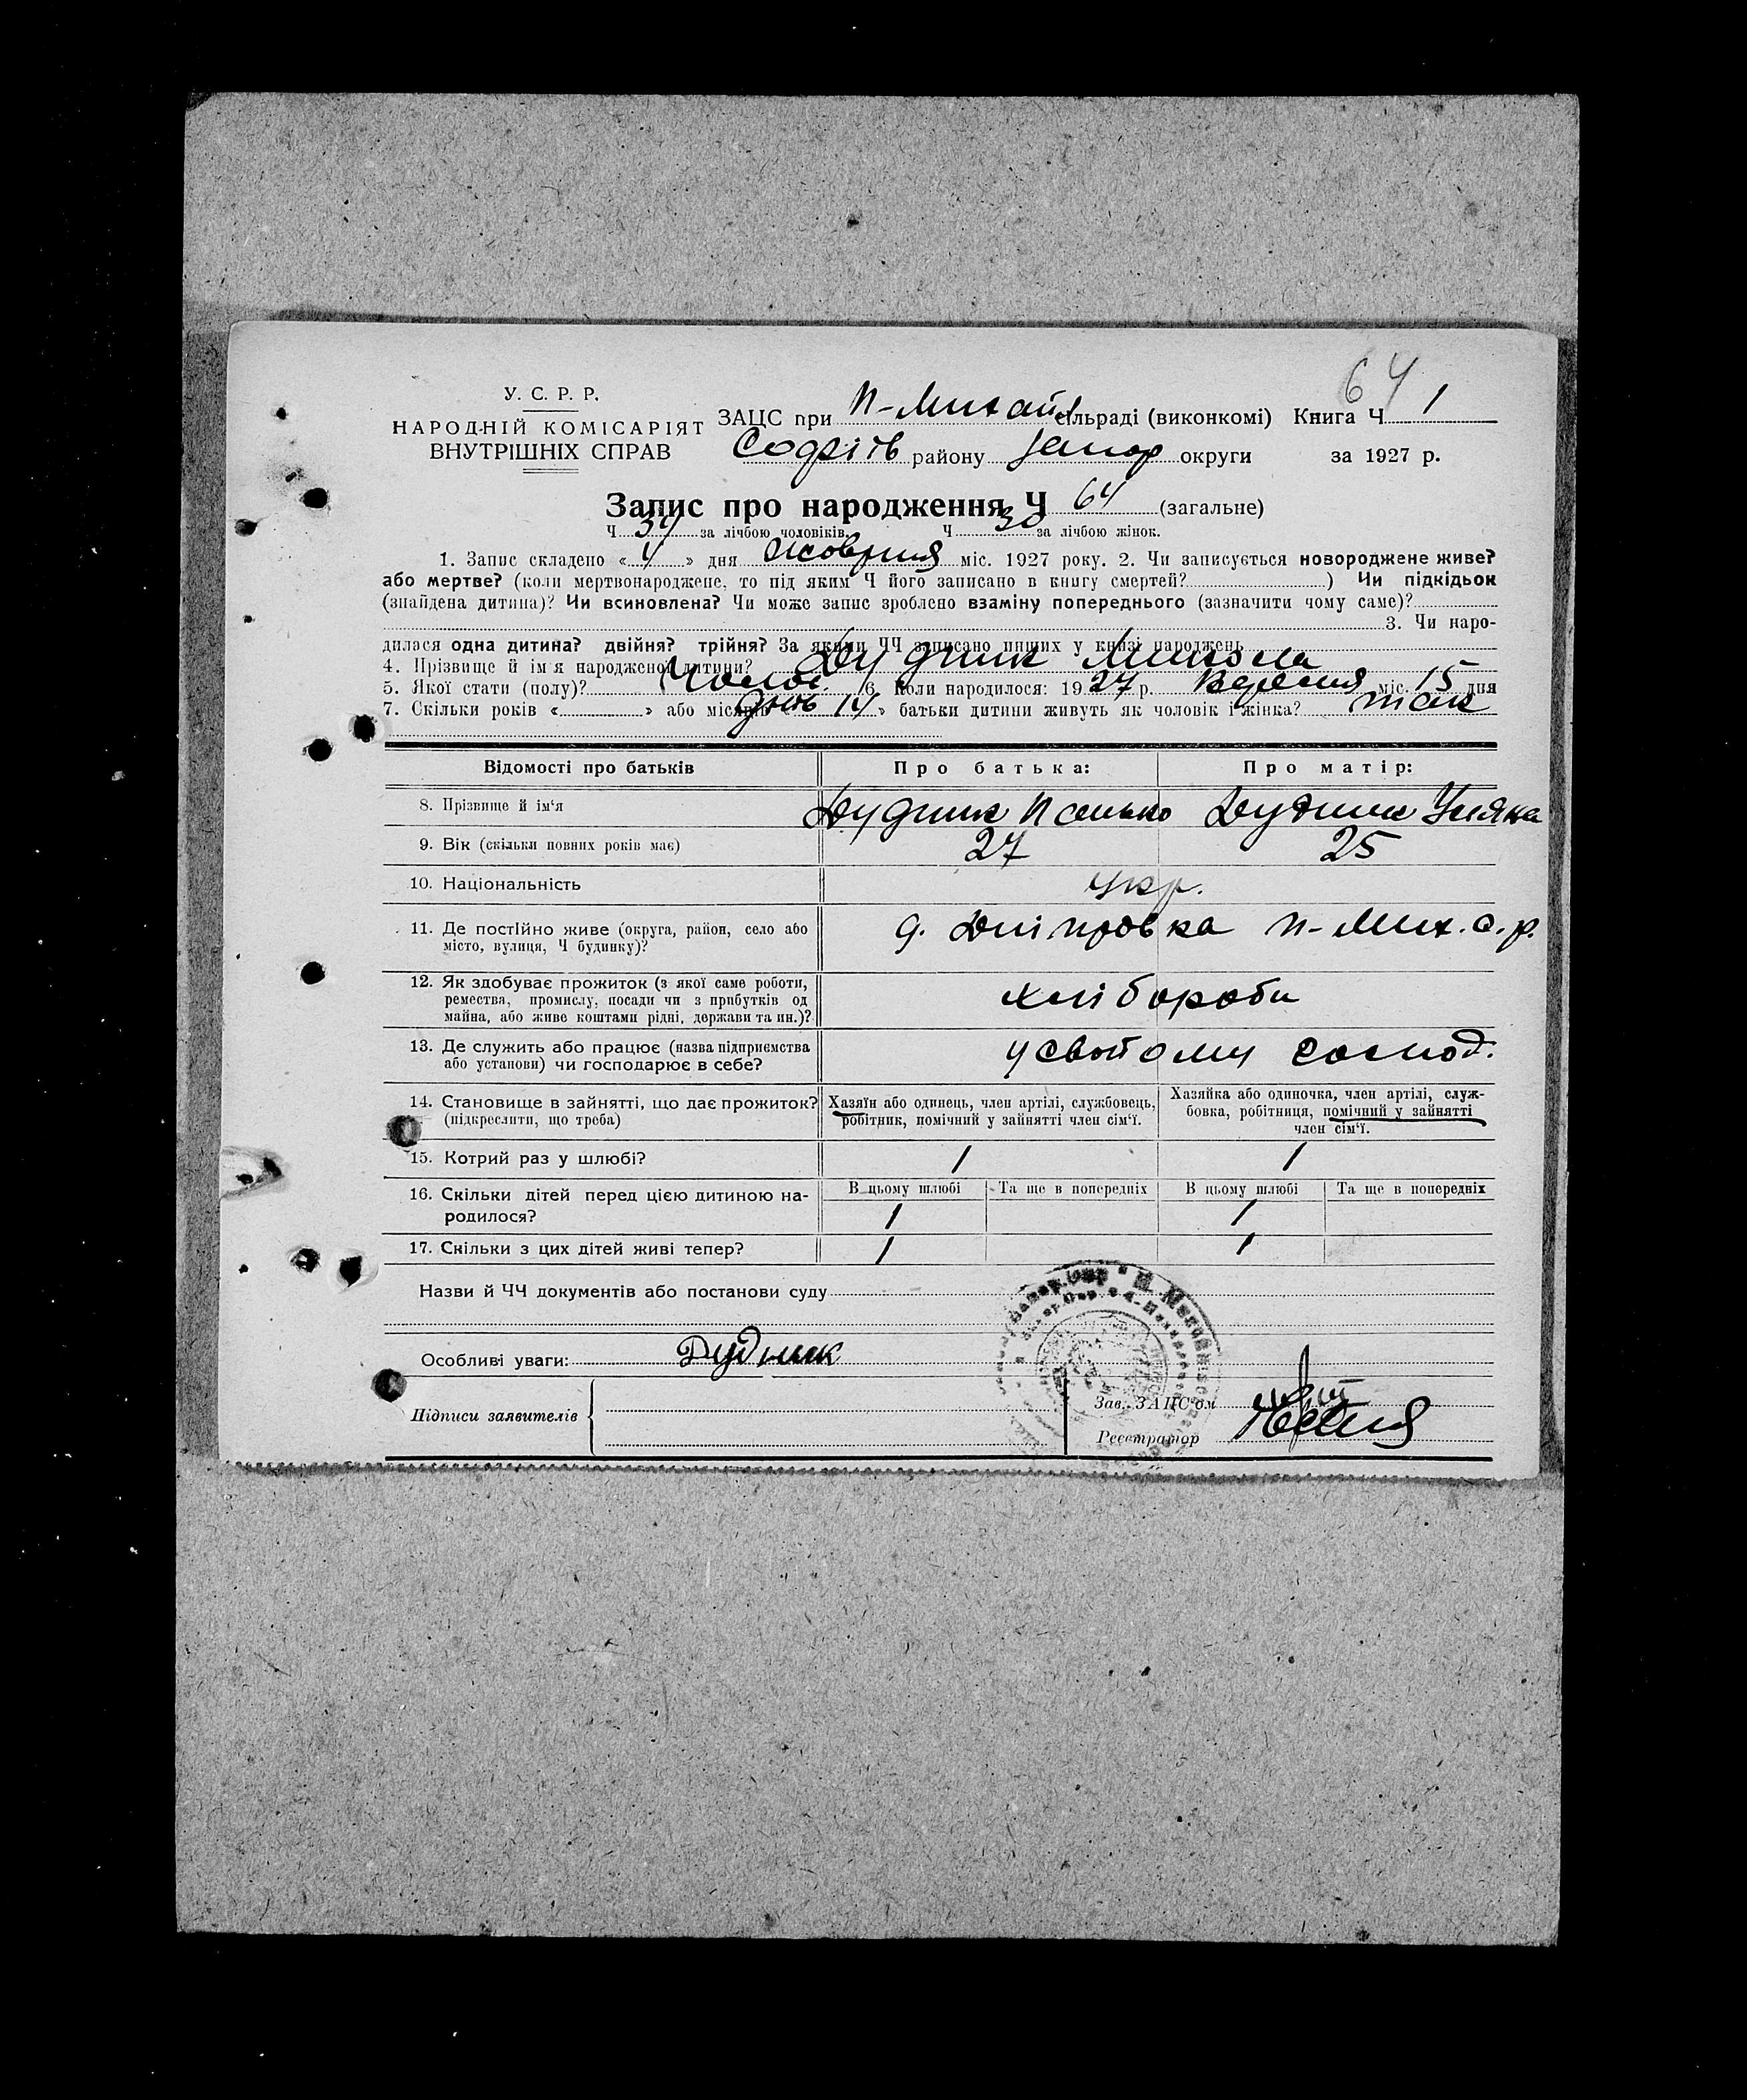 64
У. С. Р. Р.
НАРОДНІЙ КОМІСАРІЯТ
ВНУТРІШНІХ СПРАВ
ЗАЦС при Н-Михайл сільраді (виконкомі) Книга Ч 1
Софіїв району Запор округи за 1927 р.
Запис про народження Ч 64 (загальне)
Ч 34 за лічбою чоловіків. Ч 30 за лічбою жінок.
1. Запис складено « 4 » дня жовтня міс. 1927 року. 2. Чи записується новороджене живе?
або мертве? (коли мертвонароджене, то під яким Ч його записано в книгу смертей? ) Чи підкідьок
(знайдена дитина)? Чи всиновлена? Чи може запис зроблено взаміну попереднього (зазначити чому саме)?
3. Чи наро-
дилася одна дитина? двійня? трійня? За якими ЧЧ записано инших у книзі народжень
4. Прізвище й ім'я народженої дитини? Дудник Микола
5. Якої стати (полу)? Чолов. 6. Коли народилося: 1927 р. Вересня міс. 15 дня
7. Скільки років « » або місяців « 14 » батьки дитини живуть як чоловік і жінка? так
Відомості про батьків Про батька: Про матір:
8. Прізвище й ім'я Дудник Панько Дудник Уляна
9. Вік (скільки повних років має) 27 25
10. Національність укр.
11. Де постійно живе (округа, район, село або
місто, вулиця, Ч будинку)? д. Дніпровка Н-Мих. с. р.
12. Як здобуває прожиток (з якої саме роботи,
ремества, промислу, посади чи з прибутків од
майна, або живе коштами рідні, держави та ин.)? хлібороби
13. Де служить або працює (назва підприємства
або установи) чи господарює в себе? у свойому господ.
14. Становище в зайнятті, що дає прожиток?
(підкреслити, що треба)
Хазяїн або одинець, член артілі, службовець,
робітник, помічний у зайнятті член сім'ї.
Хазяйка або одиночка, член артілі, служ-
бовка, робітниця, помічний у зайнятті
член сім'ї.
15. Котрий раз у шлюбі? 1 1
16. Скільки дітей перед цією дитиною на-
родилося?
В цьому шлюбі Та ще в попередніх В цьому шлюбі Та ще в попередніх
1 1
17. Скільки з цих дітей живі тепер? 1 1
Назви й ЧЧ документів або постанови суду
Особливі уваги: Дудник
Підписи заявителів
Зав. ЗАЦС'ом
Реєстратор